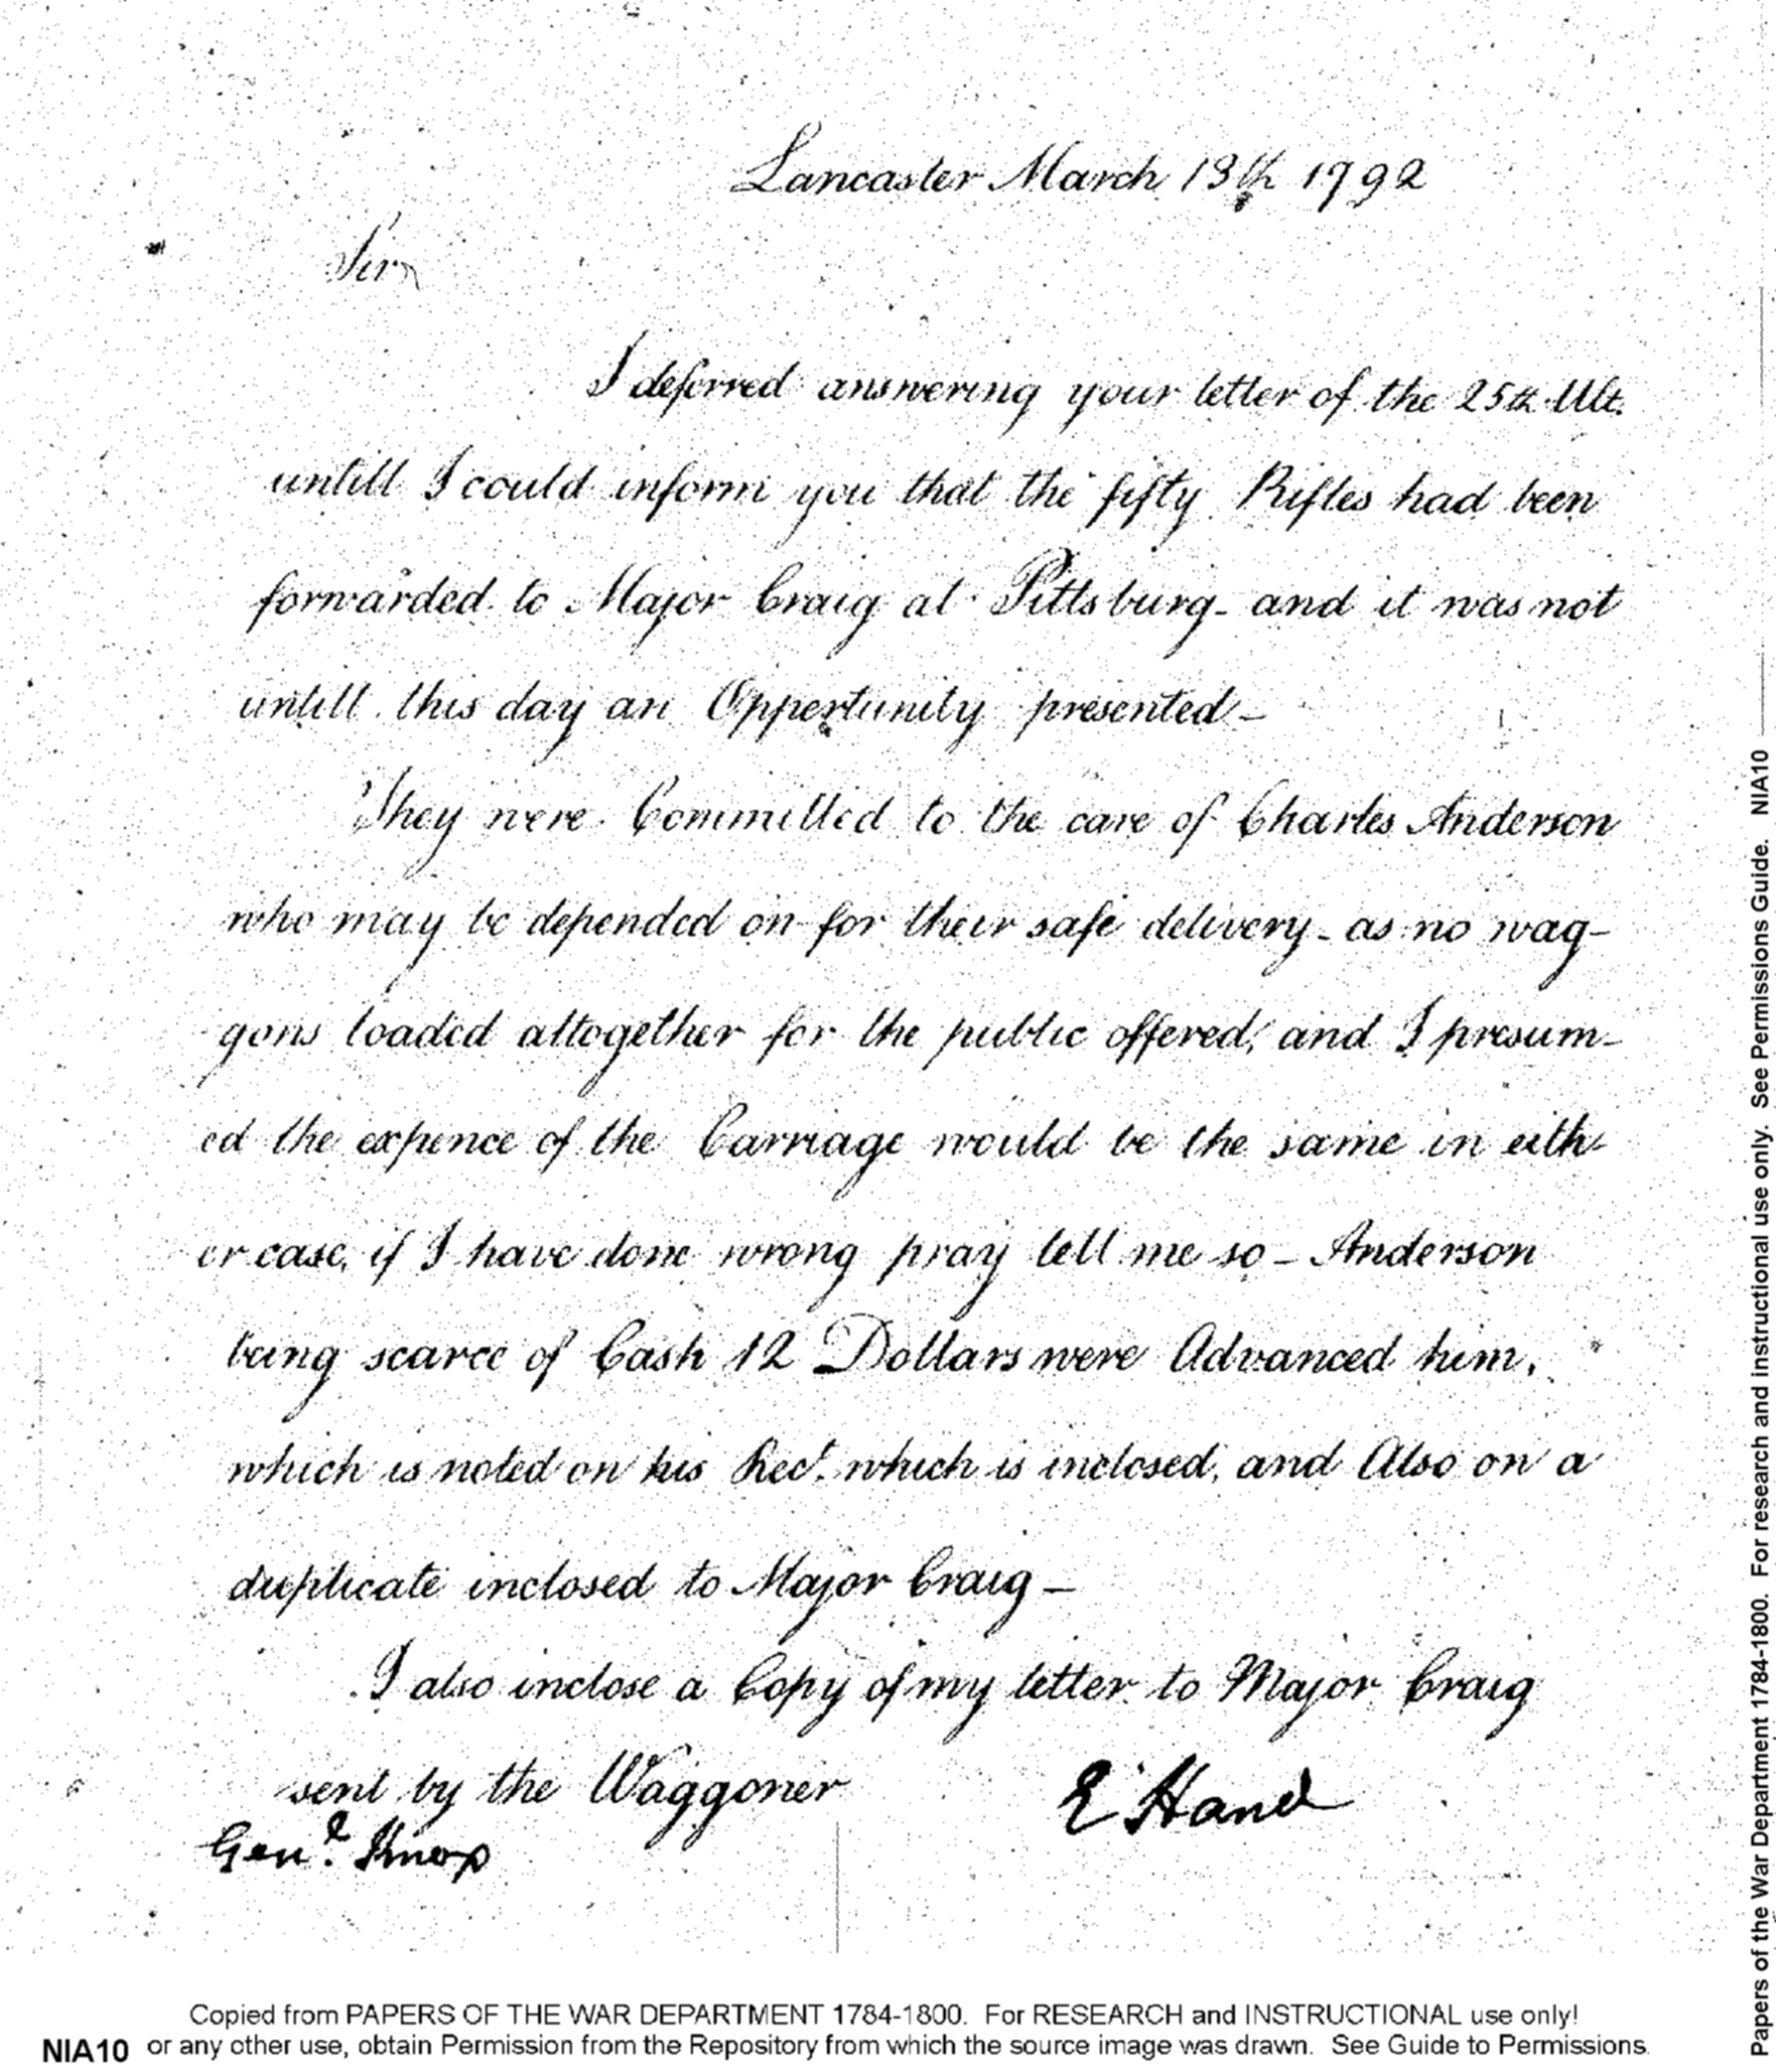 Lancaster March 13th 1792
Sir
I deferred answering your letter of the 25th Ult.
untill I could inform you that the fifty Rifles had been
forwarded to Major Craig at Pittsburg - and it was not
untill this day an Oppertunity presented -
They were Committed to the care of Charles Anderson
who may be depended on for their safe delivery - as no wag-
gons loaded altogether for the public offered, and I presum-
ed the expence of the Carriage would be the same in eith-
er case, if I have done wrong pray tell me so - Anderson
being scarce of Cash 12 Dollars were Advanced him,
which is noted on his Rect. which is inclosed, and Also on a
duplicate inclosed to Major Craig -
I also inclose a Copy of my letter to Major Craig
sent by the Waggoner
E Hand
Genl. Knox
Copied from PAPERS OF THE WAR DEPARTMENT 1784-1800. For RESEARCH and INSTRUCTIONAL use only!
NIA10 or any other use, obtain Permission from the Repository from which the source image was drawn. See Guide to Permissions.
Papers of the War Department 1784-1800. For research and instructional use only. See Permissions Guide. NIA10